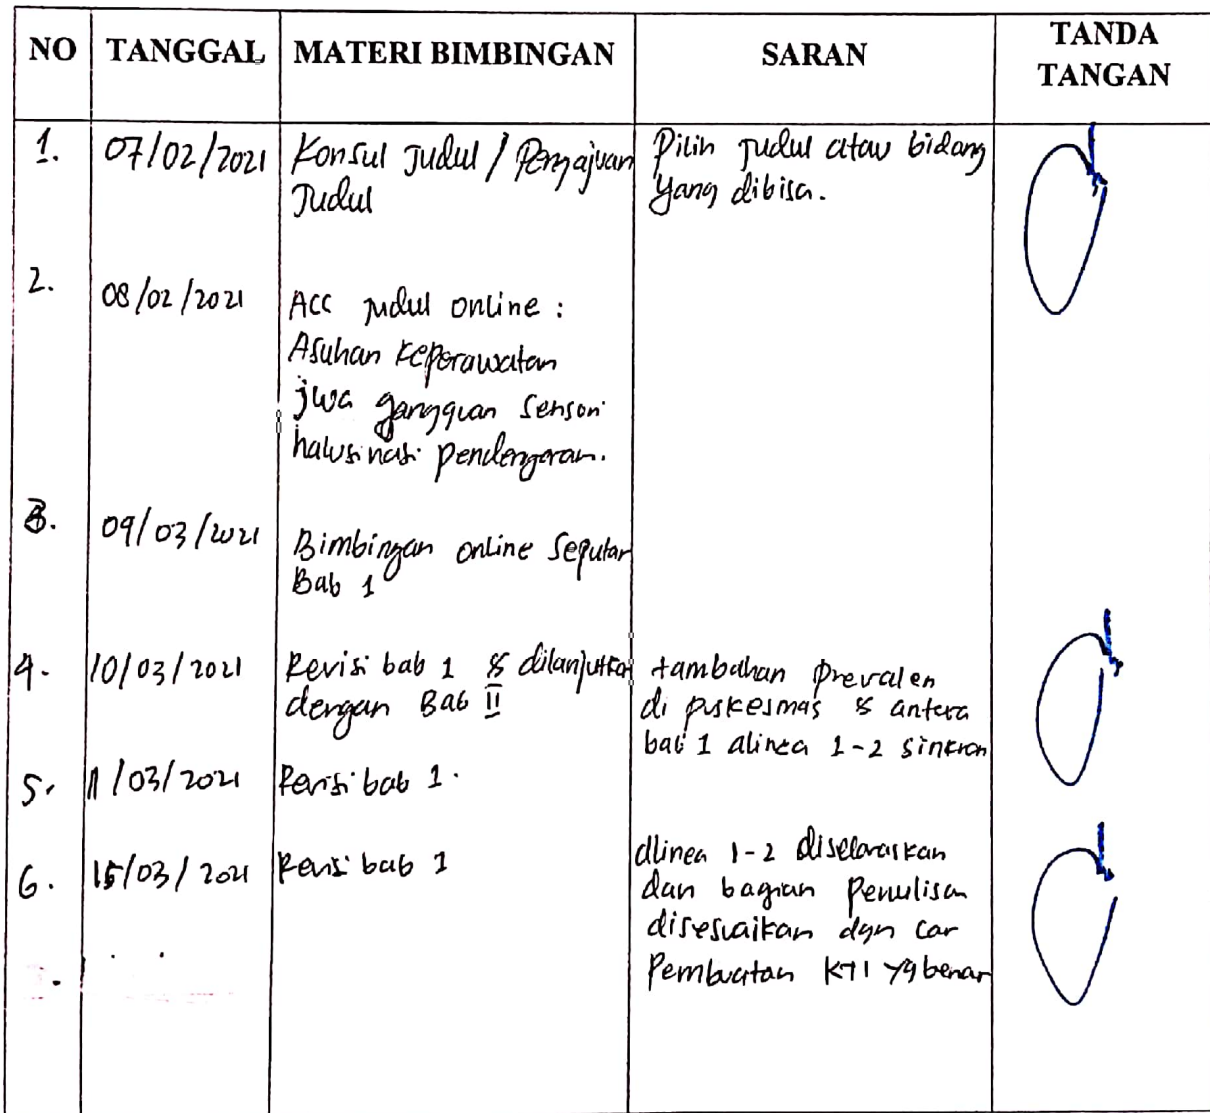 NO TANGGAL MATERI BIMBINGAN SARAN TANDA
TANGAN
1. 07/02/2021 Konsul Judul / Pengajuan Pilih Judul atau bidang
Judul yang dibisa.
2. 08/02/2021 Acc judul online :
Asuhan keperawatan
jiwa gangguan sensori
halusinasi pendengaran.
3. 09/03/2021 Bimbingan online Seputar
Bab 1
4. 10/03/2021 Revisi bab 1 & dilanjutkan tambahan prevalen
dengan Bab II di puskesmas & antara
bab 1 alinea 1-2 sinkron
5. 11/03/2021 Revisi bab 1.
6. 15/03/2021 Revisi bab 1 alinea 1-2 diselaraskan
dan bagian Penulisan
disesuaikan dgn car
Pembuatan KTI yg benar